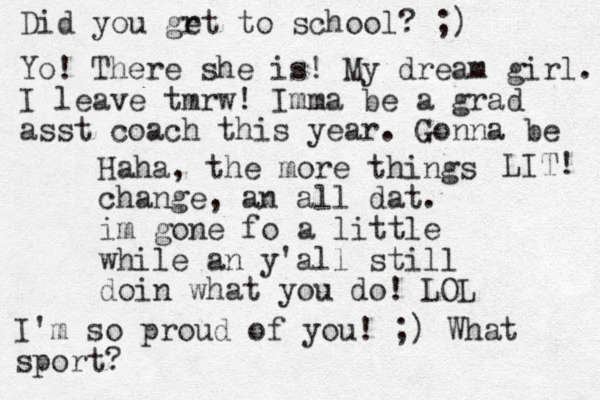 Did you gret to school? ;)
Yo! There she is! My dream girl.
I leave tmrw! Imma be a grad
asst coach this year. Gonna be
LIT!
Haha, the more things
change, an all dat.
im gone fo a little
while an y'all still
doin what you do! LOL
I'm so proud of you! ;) What
sport?